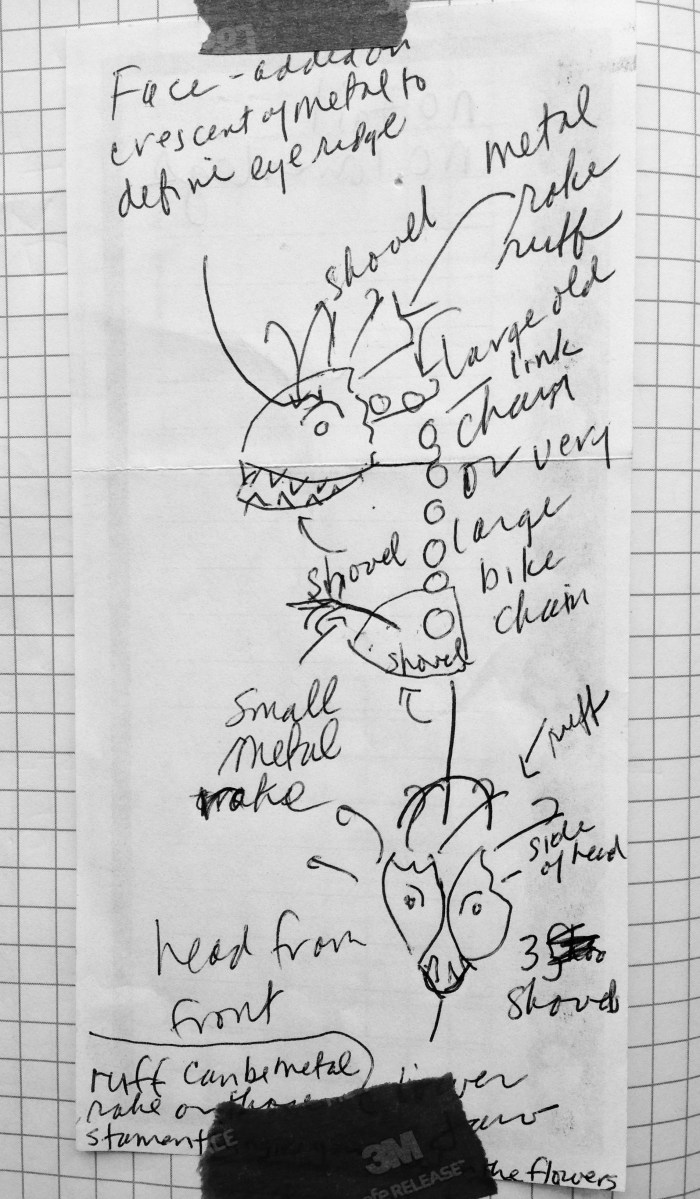 Face - added on
crescent of metal to
define eye ridge
metal
rake
ruff
Shovel
large old
link
chain
or very
large
bike
chain
Shovel
shovel
Small
metal
rake
ruff
side
of head
head from
front
3
Shovels
ruff can be metal
rake or those
stament
lower
jaw
the flowers
3M
RELEASE